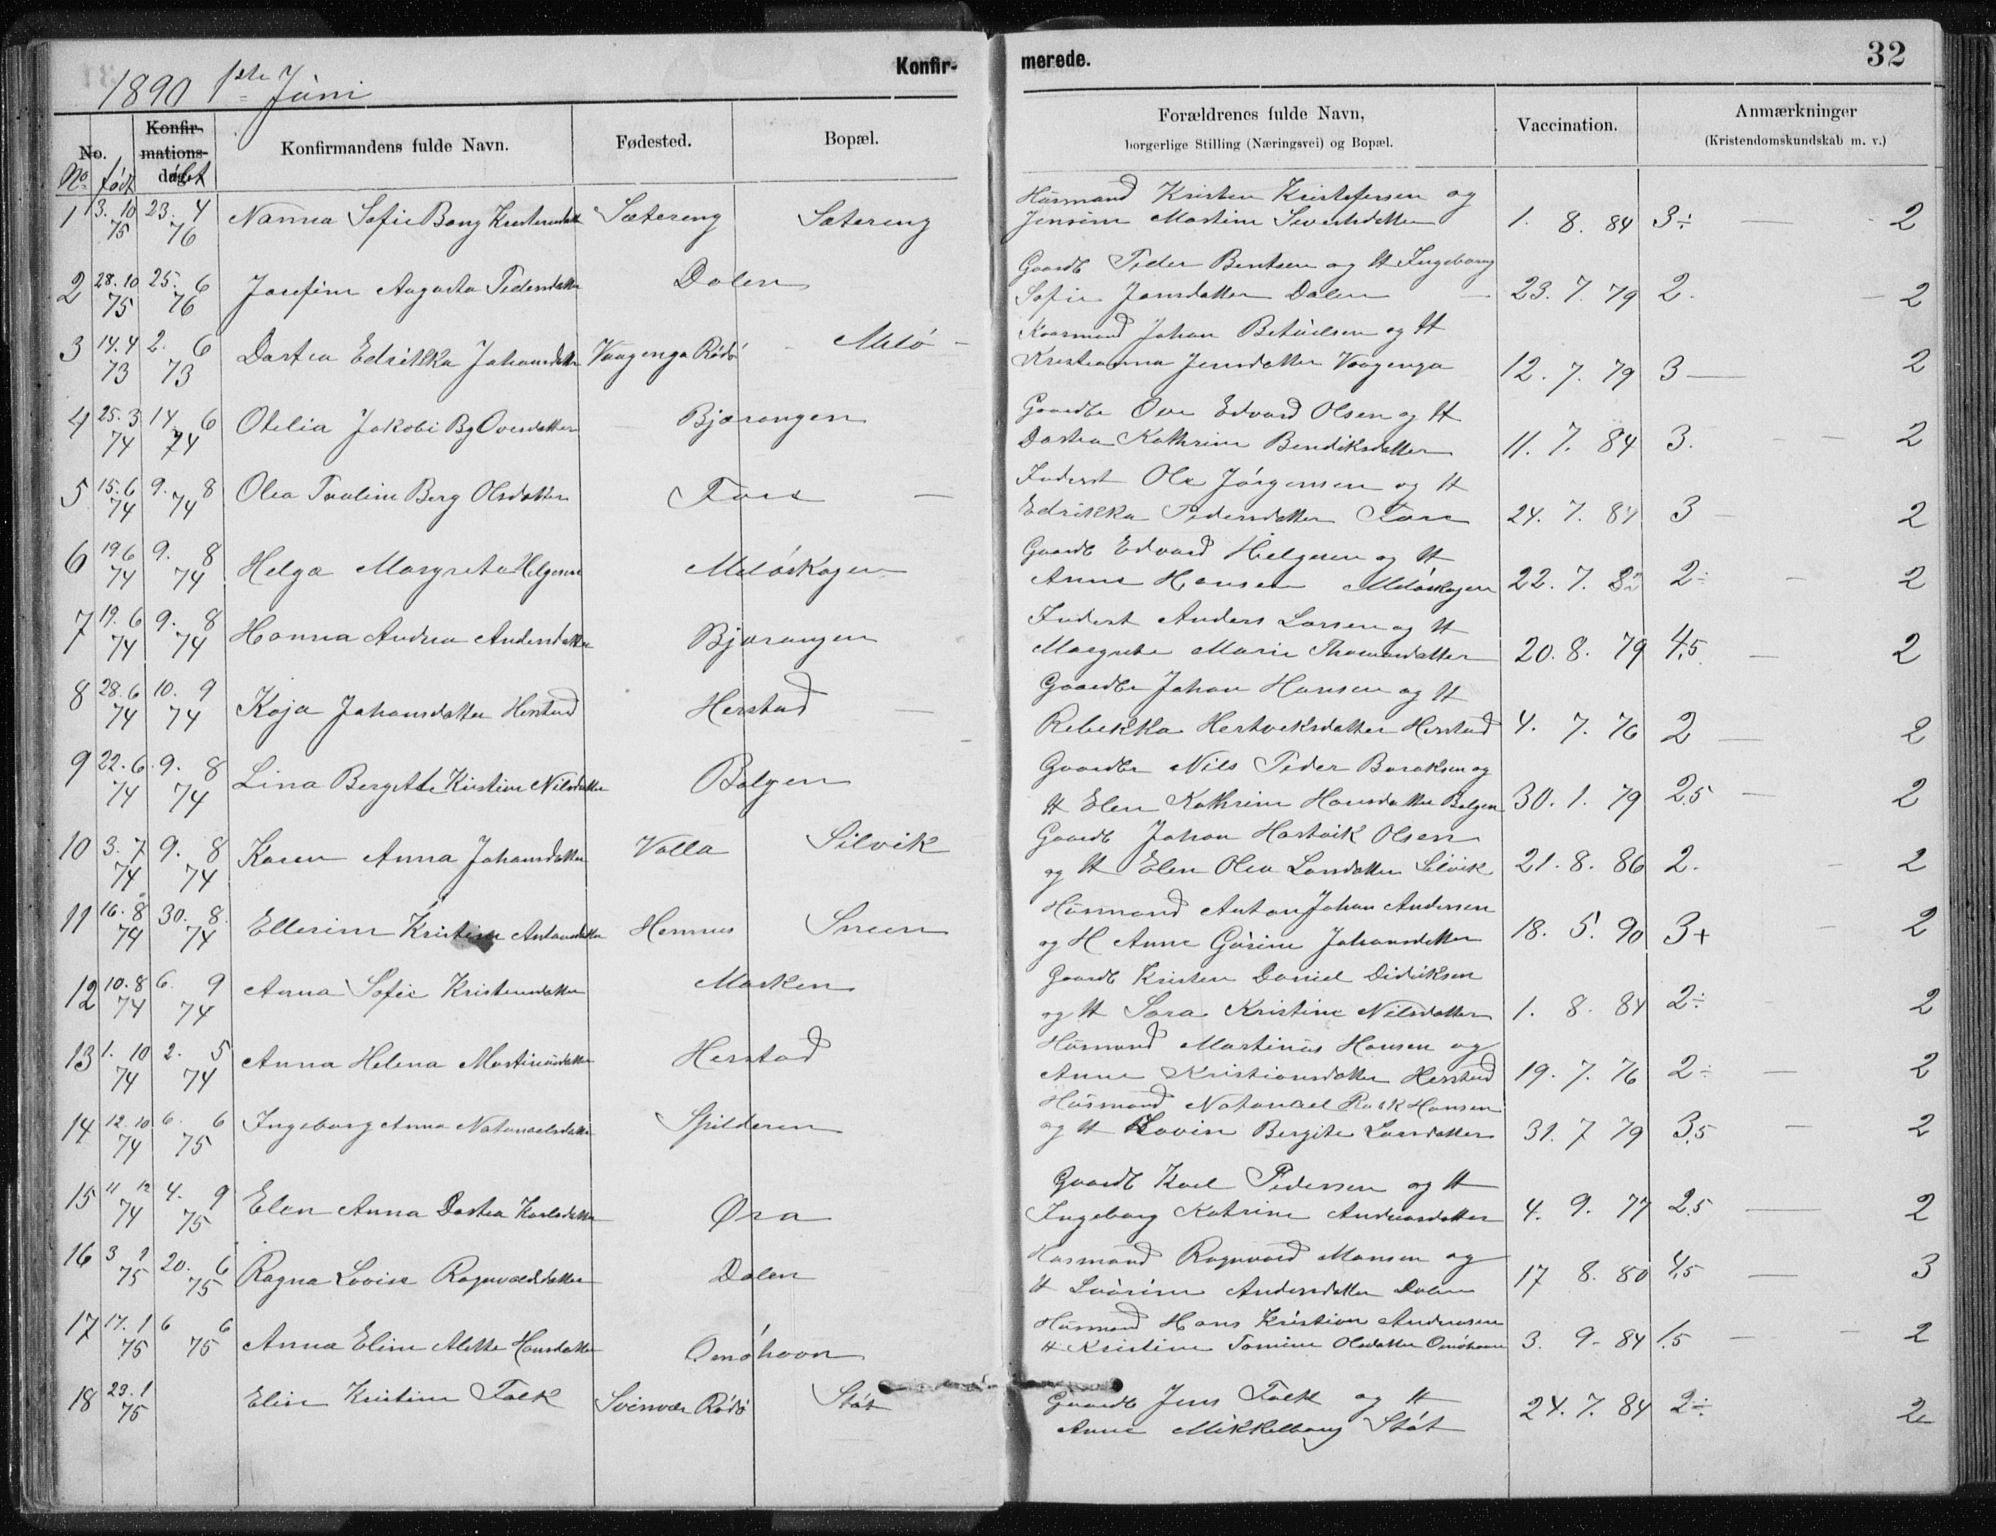 1890 1ste Juni
Konfir-
merede.
32
No.
Konfir-
mations-
dag.
Konfirmandens fulde Navn.
Fødested.
Bopæl.
Forældrenes fulde Navn,
borgerlige Stilling (Næringsvei) og Bopæl.
Vaccination.
Anmærkninger
(Kristendomskundskab m. v.)
No født døbt
1 3. 10 75 23. 4 76 Nanna Sofie Bang Kristensdatt Sætereng Sætereng
Husmand Kristen Kristofersen og
Jensine Martine Sivertsdatter 1. 8. 84 3÷ — 2
2 28. 10 75 25. 6 76 Josefine Augusta Pedersdatter Dalen
Gaardb Peder Bentsen og H Ingeborg
Sofie Jonsdatter Dalen — 23. 7. 79 2. - 2
3 14. 4 73 2. 6 73 Dortea Edrikka Johansdatter Vaagenga Rødö Melö
Husmand Johan Betuelsen og H
Kristianna Jensdatter Vaagenga 12. 7. 79 3 — 2
4 25. 3 74 14. 6 74 Otelia Jakobi Bg Ovesdatter Bjærangen
Gaardbr Ove Edvard Olsen og H
Dortea Kathrine Bendiksdatter 11. 7. 84 3. - - 2
5 15. 6 74 9. 8 74 Olea Paaline Berg Olsdatter Fore —
Inderst Ole Jörgensen og H
Edrikka Pedersdatter Fore 24. 7. 84 3 - 2
6 19. 6 74 9. 8 74 Helga Margreta Helgesen Melöskogen
Gaardb Edvard Helgesen og H
Anne Hansen Melöskogen 22. 7. 82 2÷ - 2
7 19. 6 74 9. 8 74 Hanna Andrea Andersdatter Bjærangen
Inderst Anders Larsen og H
Margrete Marie Thomasdatter 20. 8. 79 4,5 — 2
8 28. 6 74 10. 9 74 Kaja Johansdatter Herstad Herstad —
Gaardbr Johan Hansen og H
Rebekka Hertviksdatter Herstad 4. 7. 76 2 — 2
9 22. 6 74 9. 8 74 Lina Bergitte Kristine Nilsdatter Bolgen
Gaardbr Nils Peder Baraksen og
H Elen Kathrine Hansdatter Bolgen 30. 1. 79 2,5 — 2
10 3. 7 74 9. 8 74 Karen Anna Johansdatter Valla Silvik
Gaardb Johan Hartvik Olsen
og H Elen Olea Larsdatter Silvik 21. 8. 86 2. - 2
11 16. 8 74 30. 8 74 Ellerine Kristine Antonsdatter Hemnes Sneen
Husmand Anton Johan Andersen
og H Anne Gurine Johansdatter 18. 5. 90 3+ - 2
12 10. 8 74 6. 9 74 Anna Sofie Kristensdatter Marken
Gaardb Kristen Daniel Didriksen
og H Sara Kristine Nilsdatter 1. 8. 84 2÷ - 2
13 1. 10 74 2. 5 74 Anna Helena Martinusdatter Herstad
Husmand Martinus Hansen og
Anne Kristiansdatter Herstad 19. 7. 76 2÷ — 2
14 12. 10 74 6. 6 75 Ingeborg Anna Natanaelsdatter Spilderen
Husmand Natanael Rask Hansen
og H Lovise Bergite Larsdatter 31. 7 79 3,5 - 2
15 11 12 74 4. 9 75 Elen Anna Dortea Karlsdatter Øra
Gaardb Karl Pedersen og H
Ingeborg Katrine Andreasdatter 4. 9. 77 2,5 — 2
16 3 2 75 20. 6 75 Ragna Lovise Ragnvaldsdatter Dalen
Husmand Ragnvard Monsen og
H Andersdatter Dalen 17 8. 80 4,5 — 3
17 17. 1 75 6 6 75 Anna Eline Alette Hansdatter Omöhavn
Husmand Hans Kristian Andreasen
H Kristine Tomine Olsdatter Omöhavn 3. 9- 84 1,5 - - 2
18 23. 1 75 Elise Kristine Falk Svinvær Rödö Støt
Gaardb Jens Falk og H
Anne Mikkelborg Støt 24. 7. 84 2÷ 2